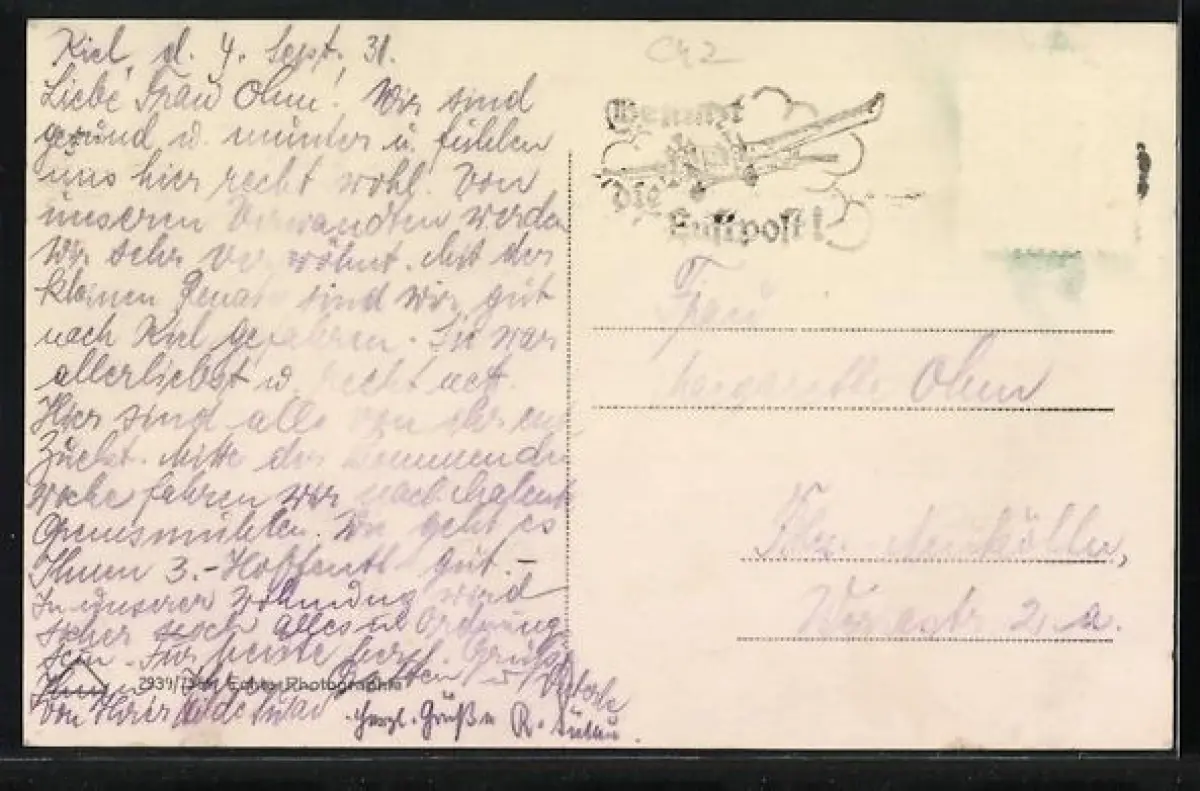 Kiel, d. 4. Sept. 31.
Liebe Frau Ohm! Wir sind
gesund u. munter u. fühlen
uns hier recht wohl. Von
unseren Verwandten werden
wir sehr verwöhnt. Mit der
kleinen sind wir gut
nach Kiel gefahren. Sie war
allerliebst u. recht nett.
Hier sind alle von ihr ent-
zückt. Mitte der kommenden
Woche fahren wir nach Malente
Gremsmühlen. Wie geht es
Ihnen 3.-Hoffentl. gut.-
In unserer Wohnung wird
sicher noch alles in Ordnung
sein. Für heute herzl. Grüße
Ihnen
von Ihrer
Herzl. Grüße R.
2939/73 Echte Photographie
C42
Benutzt
die
Luftpost!
Frau
Margarethe Ohm
Bln.-Neukölln,
2 a.